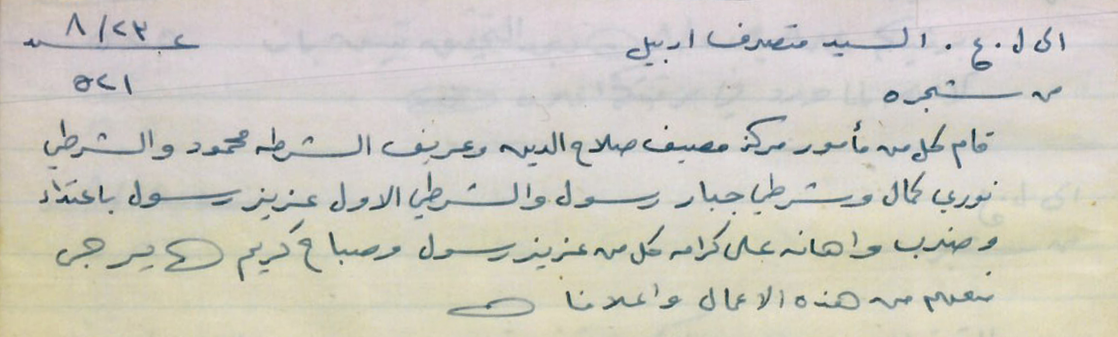 الى ل . ع . السيد متصرف اربيل
٨/٢٣
من شجره
٥٢١
قام كل من مأمور مركز مصيف صلاح الدين وعريف الشرطه محمود والشرطي
نوري كمال وشرطي جبار رسول والشرطي الاول عزيز رسول باعتداء
وضرب واهانه على كرامه كل من عزيز رسول وصباح كريم يرجى
منعهم من هذه الاعمال واعلامنا